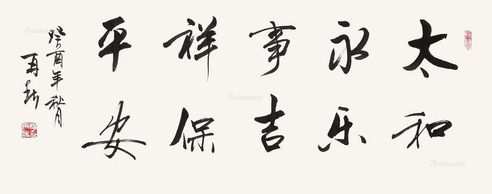 太和
永乐
事吉
祥保
平安
癸酉年秋月